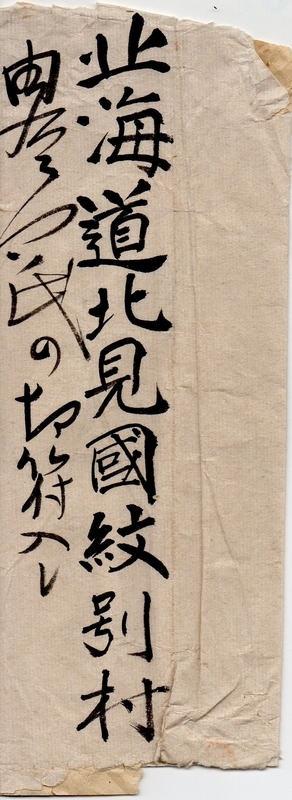 北海道北見國紋別村
氏の切符入し